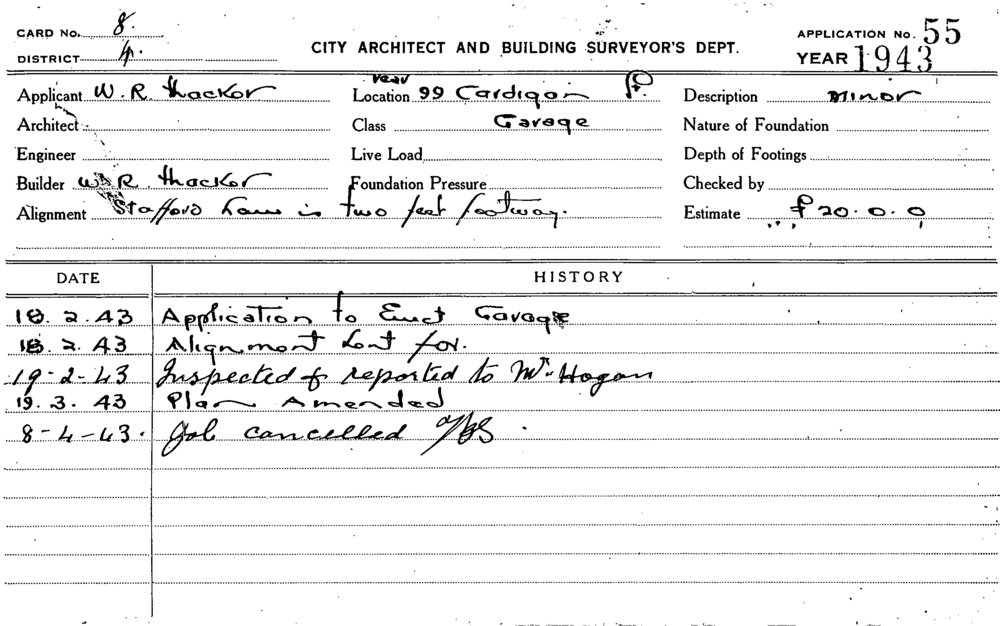 CARD No. 8. CITY ARCHITECT AND BUILDING SURVEYOR'S DEPT. APPLICATION No. 55
DISTRICT 4. YEAR 1943
rear
Applicant W. R. Thacker Location 99 Cardigan St. Description Minor
Architect Class Garage Nature of Foundation
Engineer Live Load Depth of Footings
Builder W. R. Thacker Foundation Pressure Checked by
Alignment Stafford Lane is two feet footway. Estimate £20.0.0
DATE HISTORY
18.2.43 Application to Erect Garage
18.2.43 Alignment sent for.
19-2-43 Inspected & reported to Mr. Hogan
19.3.43 Plan Amended
8-4-43. Job cancelled